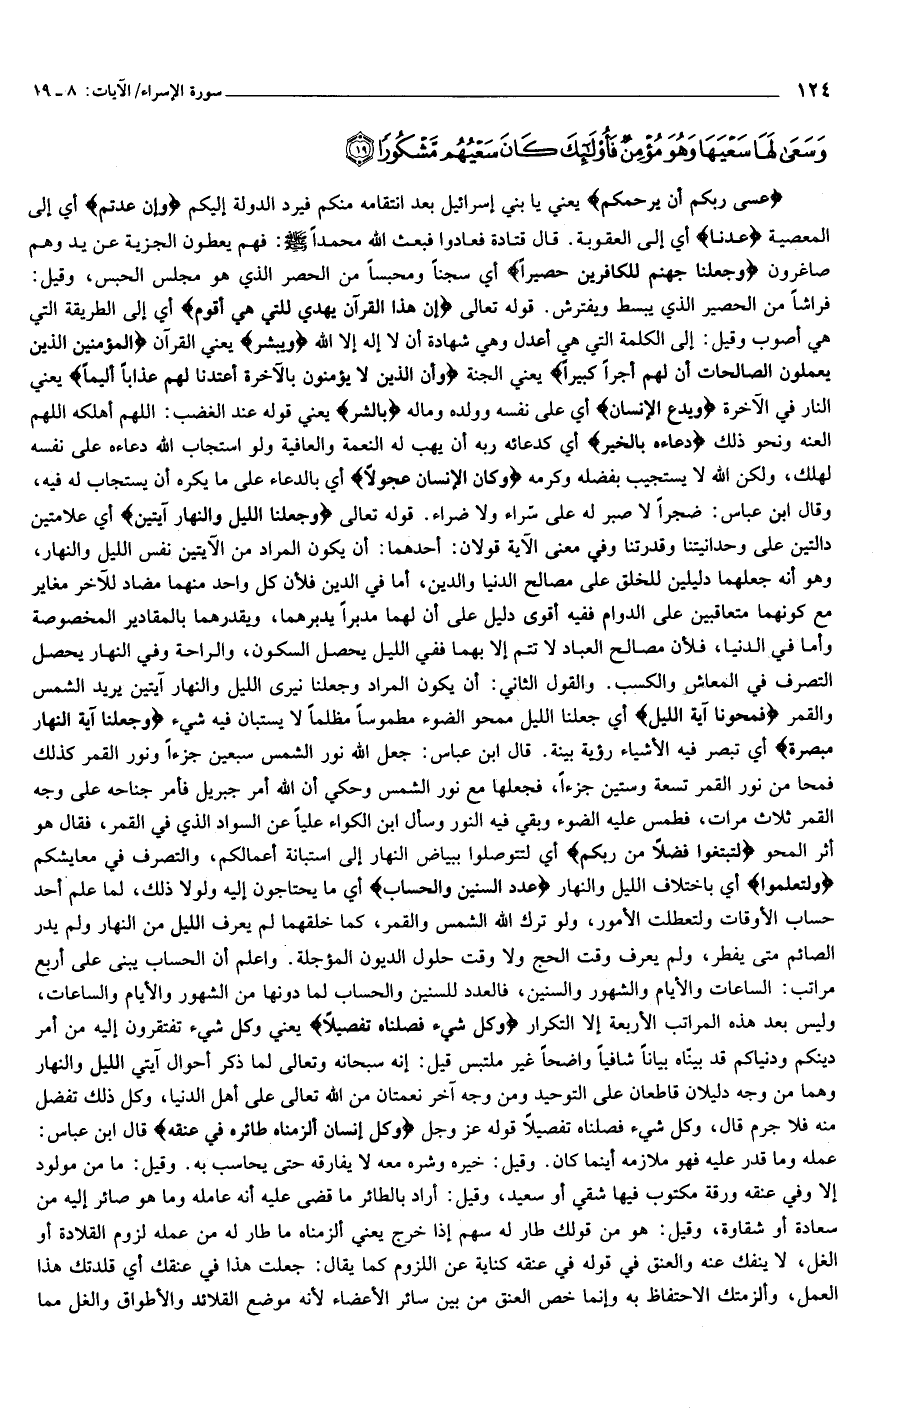 ١٢٤ ــــــــــ سورة الإسراء/ الآيات: ٨ ـ ١٩
وَسَعَىٰ لَهَا سَعْيَهَا وَهُوَ مُؤْمِنٌ فَأُوْلَٰٓئِكَ كَانَ سَعْيُهُم مَّشْكُورًا ﴿١٩﴾
﴿عسى ربكم أن يرحمكم﴾ يعني يا بني إسرائيل بعد انتقامه منكم فيرد الدولة إليكم ﴿وإن عدتم﴾ أي إلى
المعصية ﴿عدنا﴾ أي إلى العقوبة. قال قتادة فعادوا فبعث الله محمداً ﷺ: فهم يعطون الجزية عن يد وهم
صاغرون ﴿وجعلنا جهنم للكافرين حصيراً﴾ أي سجناً ومحبساً من الحصر الذي هو مجلس الحبس، وقيل:
فراشاً من الحصير الذي يبسط ويفترش. قوله تعالى ﴿إن هذا القرآن يهدي للتي هي أقوم﴾ أي إلى الطريقة التي
هي أصوب وقيل: إلى الكلمة التي هي أعدل وهي شهادة أن لا إله إلا الله ﴿ويبشر﴾ يعني القرآن ﴿المؤمنين الذين
يعملون الصالحات أن لهم أجراً كبيراً﴾ يعني الجنة ﴿وأن الذين لا يؤمنون بالآخرة أعتدنا لهم عذاباً أليماً﴾ يعني
النار في الآخرة ﴿ويدع الإنسان﴾ أي على نفسه وولده وماله ﴿بالشر﴾ يعني قوله عند الغضب: اللهم أهلكه اللهم
العنه ونحو ذلك ﴿دعاءه بالخير﴾ أي كدعائه ربه أن يهب له النعمة والعافية ولو استجاب الله دعاءه على نفسه
لهلك، ولكن الله لا يستجيب بفضله وكرمه ﴿وكان الإنسان عجولاً﴾ أي بالدعاء على ما يكره أن يستجاب له فيه،
وقال ابن عباس: ضجراً لا صبر له على سّراء ولا ضراء. قوله تعالى ﴿وجعلنا الليل والنهار آيتين﴾ أي علامتين
دالتين على وحدانيتنا وقدرتنا وفي معنى الآية قولان: أحدهما: أن يكون المراد من الآيتين نفس الليل والنهار،
وهو أنه جعلهما دليلين للخلق على مصالح الدنيا والدين، أما في الدين فلأن كل واحد منهما مضاد للآخر مغاير
مع كونهما متعاقبين على الدوام ففيه أقوى دليل على أن لهما مدبراً يدبرهما، ويقدرهما بالمقادير المخصوصة
وأما في الدنيا، فلأن مصالح العباد لا تتم إلا بهما ففي الليل يحصل السكون، والراحة وفي النهار يحصل
التصرف في المعاش والكسب. والقول الثاني: أن يكون المراد وجعلنا نيرى الليل والنهار آيتين يريد الشمس
والقمر ﴿فمحونا آية الليل﴾ أي جعلنا الليل ممحو الضوء مطموساً مظلماً لا يستبان فيه شيء ﴿وجعلنا آية النهار
مبصرة﴾ أي تبصر فيه الأشياء رؤية بينة. قال ابن عباس: جعل الله نور الشمس سبعين جزءاً ونور القمر كذلك
فمحا من نور القمر تسعة وستين جزءاً، فجعلها مع نور الشمس وحكي أن الله أمر جبريل فأمر جناحه على وجه
القمر ثلاث مرات، فطمس عليه الضوء وبقي فيه النور وسأل ابن الكواء علياً عن السواد الذي في القمر، فقال هو
أثر المحو ﴿لتبتغوا فضلاً من ربكم﴾ أي لتتوصلوا ببياض النهار إلى استبانة أعمالكم، والتصرف في معايشكم
﴿ولتعلموا﴾ أي باختلاف الليل والنهار ﴿عدد السنين والحساب﴾ أي ما يحتاجون إليه ولولا ذلك، لما علم أحد
حساب الأوقات ولتعطلت الأمور، ولو ترك الله الشمس والقمر، كما خلقهما لم يعرف الليل من النهار ولم يدر
الصائم متى يفطر، ولم يعرف وقت الحج ولا وقت حلول الديون المؤجلة. واعلم أن الحساب يبنى على أربع
مراتب: الساعات والأيام والشهور والسنين، فالعدد للسنين والحساب لما دونها من الشهور والأيام والساعات،
وليس بعد هذه المراتب الأربعة إلا التكرار ﴿وكل شيء فصلناه تفصيلاً﴾ يعني وكل شيء تفتقرون إليه من أمر
دينكم ودنياكم قد بيّناه بياناً شافياً واضحاً غير ملتبس قيل: إنه سبحانه وتعالى لما ذكر أحوال آيتي الليل والنهار
وهما من وجه دليلان قاطعان على التوحيد ومن وجه آخر نعمتان من الله تعالى على أهل الدنيا، وكل ذلك تفضل
منه فلا جرم قال، وكل شيء فصلناه تفصيلاً قوله عز وجل ﴿وكل إنسان ألزمناه طائره في عنقه﴾ قال ابن عباس:
عمله وما قدر عليه فهو ملازمه أينما كان. وقيل: خيره وشره معه لا يفارقه حتى يحاسب به. وقيل: ما من مولود
إلا وفي عنقه ورقة مكتوب فيها شقي أو سعيد، وقيل: أراد بالطائر ما قضى عليه أنه عامله وما هو صائر إليه من
سعادة أو شقاوة، وقيل: هو من قولك طار له سهم إذا خرج يعني ألزمناه ما طار له من عمله لزوم القلادة أو
الغل، لا ينفك عنه والعنق في قوله في عنقه كناية عن اللزوم كما يقال: جعلت هذا في عنقك أي قلدتك هذا
العمل، وألزمتك الاحتفاظ به وإنما خص العنق من بين سائر الأعضاء لأنه موضع القلائد والأطواق والغل مما